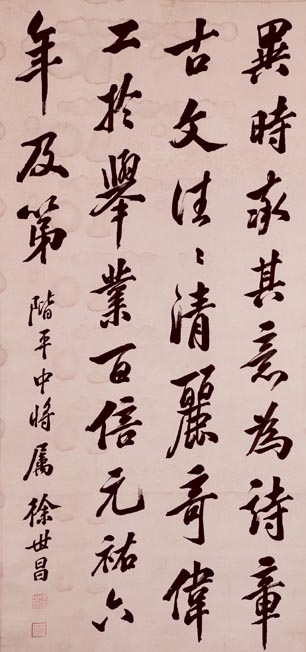 異時承其意為詩章
古文往〻清麗奇偉
工於舉業百倍元祐六
年及第
階平中將屬 徐世昌